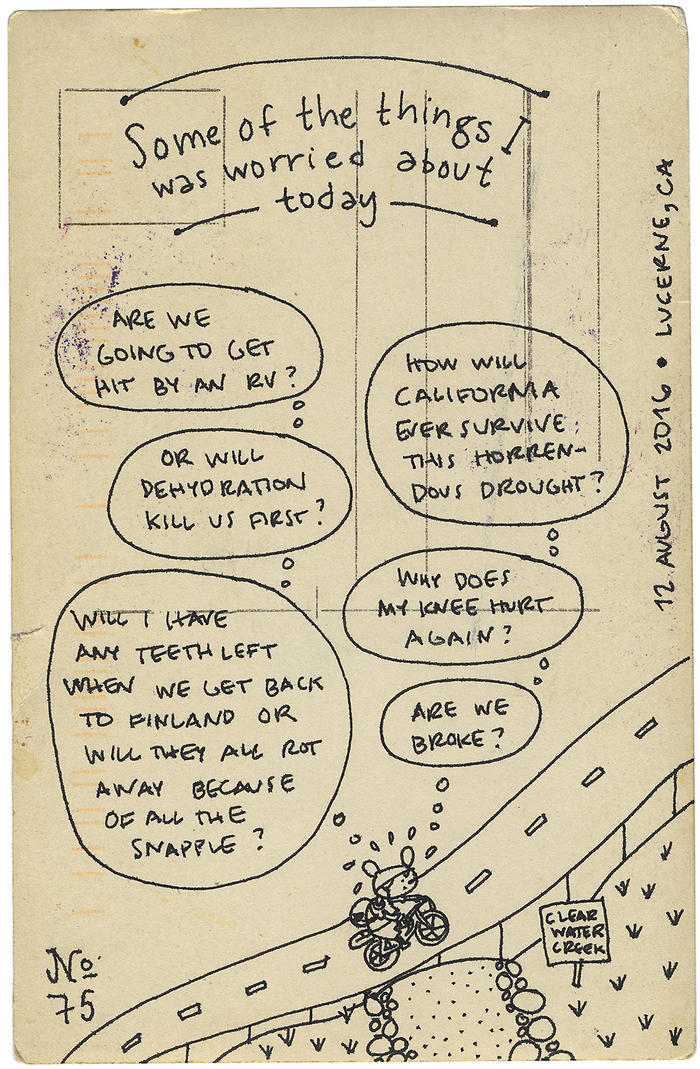 Some of the things I
was worried about
today
ARE WE
GOING TO GET
HIT BY AN RV?
OR WILL
DEHYDRATION
KILL US FIRST?
WILL I HAVE
ANY TEETH LEFT
WHEN WE GET BACK
TO FINLAND OR
WILL THEY ALL ROT
AWAY BECAUSE
OF ALL THE
SNAPPLE?
HOW WILL
CALIFORNIA
EVER SURVIVE
THIS HORREN-
DOUS DROUGHT?
WHY DOES
MY KNEE HURT
AGAIN?
ARE WE
BROKE?
CLEAR
WATER
CREEK
No
75
12 AUGUST 2016 • LUCERNE, CA